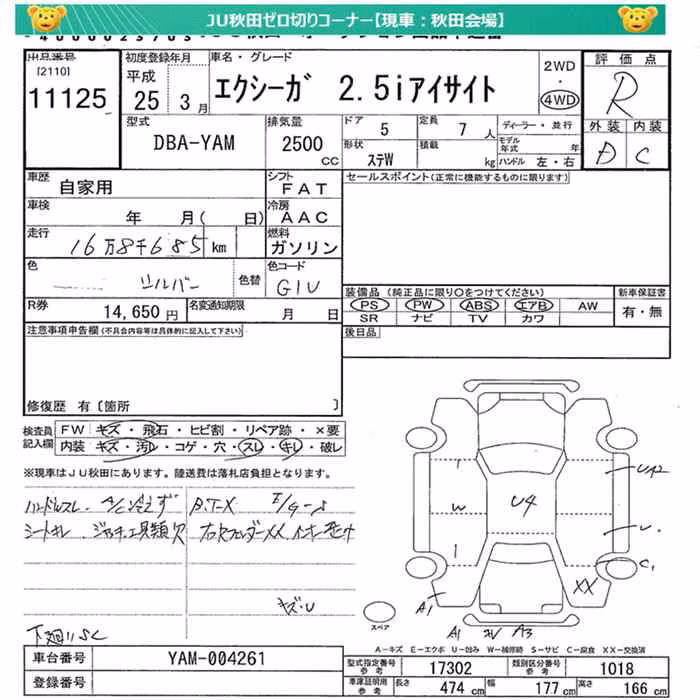 JU秋田ゼロ切りコーナー【現車：秋田会場】
出品番号
[2110]
11125
初度登録年月
平成
25 3月
車名・グレード
エクシーガ 2.5iアイサイト
2WD
・
4WD
評価点
R
外装 内装
D C
型式
DBA-YAM
排気量
2500
CC
ドア 5
定員 7人
ディーラー・並行
形状 ステW
積載 kg
モデル年式 年
ハンドル 左・右
車歴
自家用
シフト
FAT
セールスポイント(正常に機能するものに限ります)
車検
年 月( 日)
冷房
AAC
走行
16万8千685km
燃料
ガソリン
色
シルバー
色替
色コード
G1U
R券
14,650円
名変通知期限
月 日
装備品 (純正品に限り○をつけてください)
新車保証書
PS PW ABS エアB AW
有・無
SR ナビ TV カワ
後日品
注意事項申告欄(不具合内容等は具体的に記入して下さい)
修復歴 有〔箇所 〕
検査員
記入欄
FW キズ・飛石・ヒビ割・リペア跡・×要
内装 キズ・汚レ・コゲ・穴・スレ・キレ・破レ
※現車はJU秋田にあります。陸送費は落札店負担となります。
ハンドルスレ A/C冷えず
シートキレ . ジャッキ工具類欠
キズ・U
下廻りSC
U4
W
UA2
U.
C1
XX
A1
A1
A3
スペア
A－キズ E－エクボ U－凹み W－補修跡 S－サビ C－腐食 XX－交換済
車台番号 YAM-004261
登録番号
型式指定番号
参考
17302
類別区分番号
参考
1018
車庫証明用
参考
長さ 474 cm 幅 177 cm 高さ 166 cm